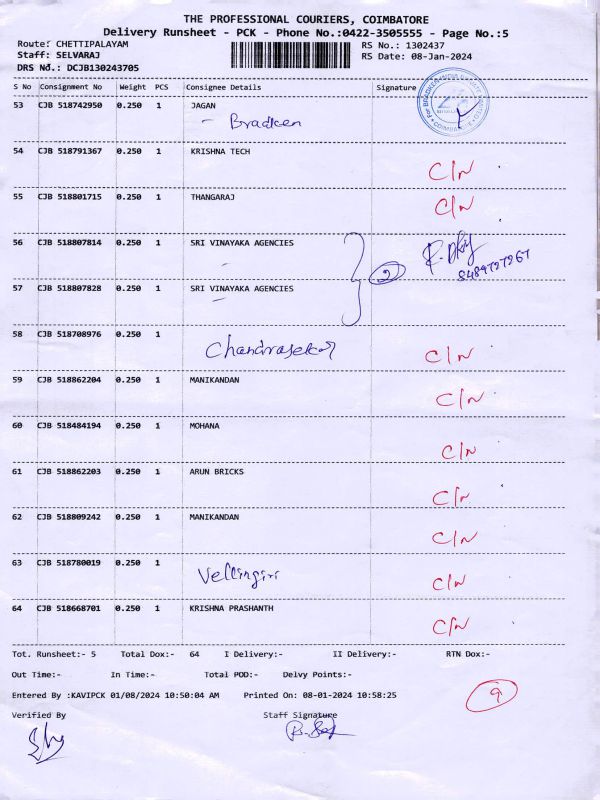 THE PROFESSIONAL COURIERS, COIMBATORE
Delivery Runsheet - PCK - Phone No.:0422-3505555 - Page No.:5
Route: CHETTIPALAYAM RS No.: 1302437
Staff: SELVARAJ RS Date: 08-Jan-2024
DRS No.: DCJB130243705
S No Consignment No Weight PCS Consignee Details Signature
53 CJB 518742950 0.250 1 JAGAN
- Bradken
54 CJB 518791367 0.250 1 KRISHNA TECH
C/N
55 CJB 518801715 0.250 1 THANGARAJ
C/N
56 CJB 518807814 0.250 1 SRI VINAYAKA AGENCIES
2
8489727267
57 CJB 518807828 0.250 1 SRI VINAYAKA AGENCIES
58 CJB 518708976 0.250 1
Chandrasekar C/N
59 CJB 518862204 0.250 1 MANIKANDAN
C/N
60 CJB 518484194 0.250 1 MOHANA
C/N
61 CJB 518862203 0.250 1 ARUN BRICKS
C/N
62 CJB 518809242 0.250 1 MANIKANDAN
C/N
63 CJB 518780019 0.250 1
Vellingiri C/N
64 CJB 518668701 0.250 1 KRISHNA PRASHANTH
C/N
Tot. Runsheet:- 5 Total Dox:- 64 I Delivery:- II Delivery:- RTN Dox:-
Out Time:- In Time:- Total POD:- Delvy Points:-
Entered By :KAVIPCK 01/08/2024 10:50:04 AM Printed On: 08-01-2024 10:58:25
9
Verified By Staff Signature